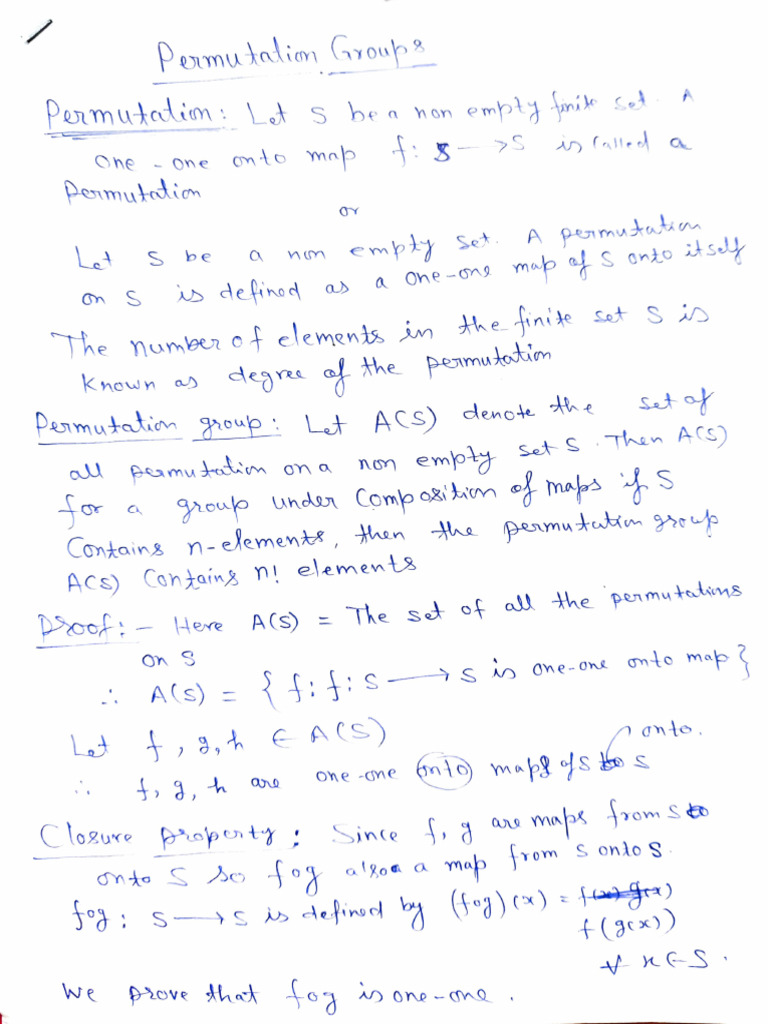 Permutation Groups
Permutation: Let S be a non empty finite set. A
one-one onto map f: S → S is called a
Permutation
or
Let S be a non empty set. A permutation
on S is defined as a one-one map of S onto itself
The number of elements in the finite set S is
known as degree of the permutation
Permutation group: Let A(S) denote the set of
all permutation on a non empty set S. Then A(S)
for a group under Composition of maps if S
Contains n-elements, then the permutation group
A(S) Contains n! elements
Proof:- Here A(S) = The set of all the permutations
on S
∴ A(S) = { f: f: S → S is one-one onto map }
Let f, g, h ∈ A(S)
onto.
∴ f, g, h are one-one onto maps of S to S
Closure property: Since f, g are maps from S to
onto S so fog also a map from S onto S.
fog: S → S is defined by (fog)(x) = f(x) g(x)
f(g(x))
∀ x ∈ S.
We prove that fog is one-one.